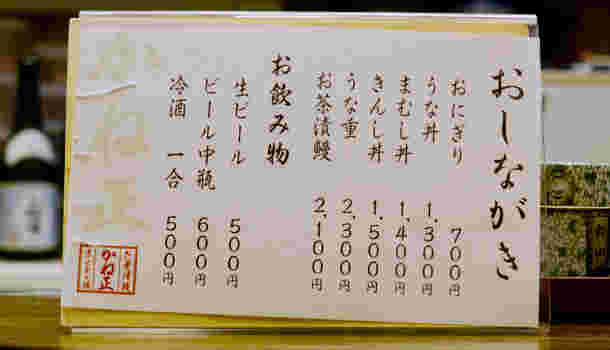 おしながき
おにぎり 700円
うな丼 1,300円
まむし丼 1,400円
きんし丼 1,500円
うな重 2,300円
お茶漬鰻 2,100円
お飲み物
生ビール 500円
ビール中瓶 600円
冷酒 一合 500円
かね正